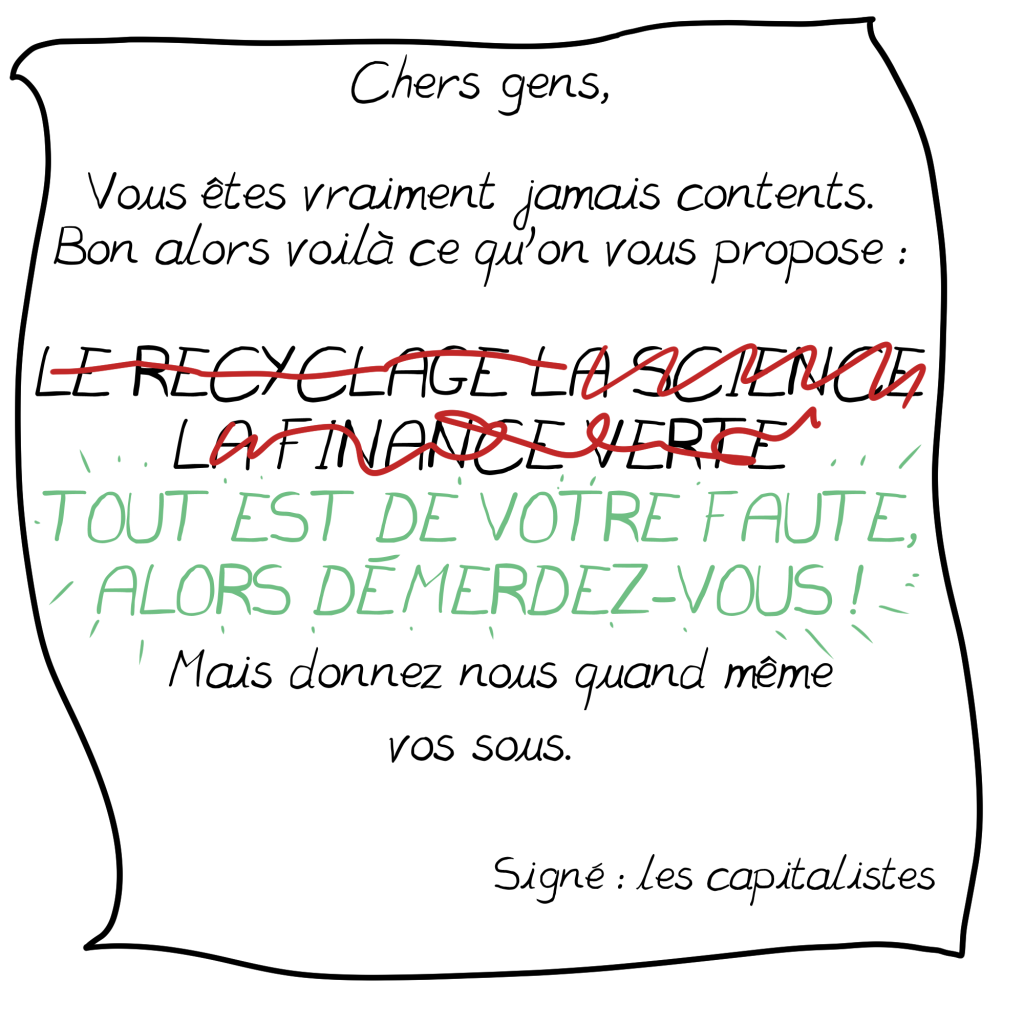 Chers gens,
Vous êtes vraiment jamais contents.
Bon alors voilà ce qu'on vous propose :
LE RECYCLAGE LA SCIENCE
LA FINANCE VERTE
TOUT EST DE VOTRE FAUTE,
ALORS DÉMERDEZ-VOUS !
Mais donnez nous quand même
vos sous.
Signé : les capitalistes